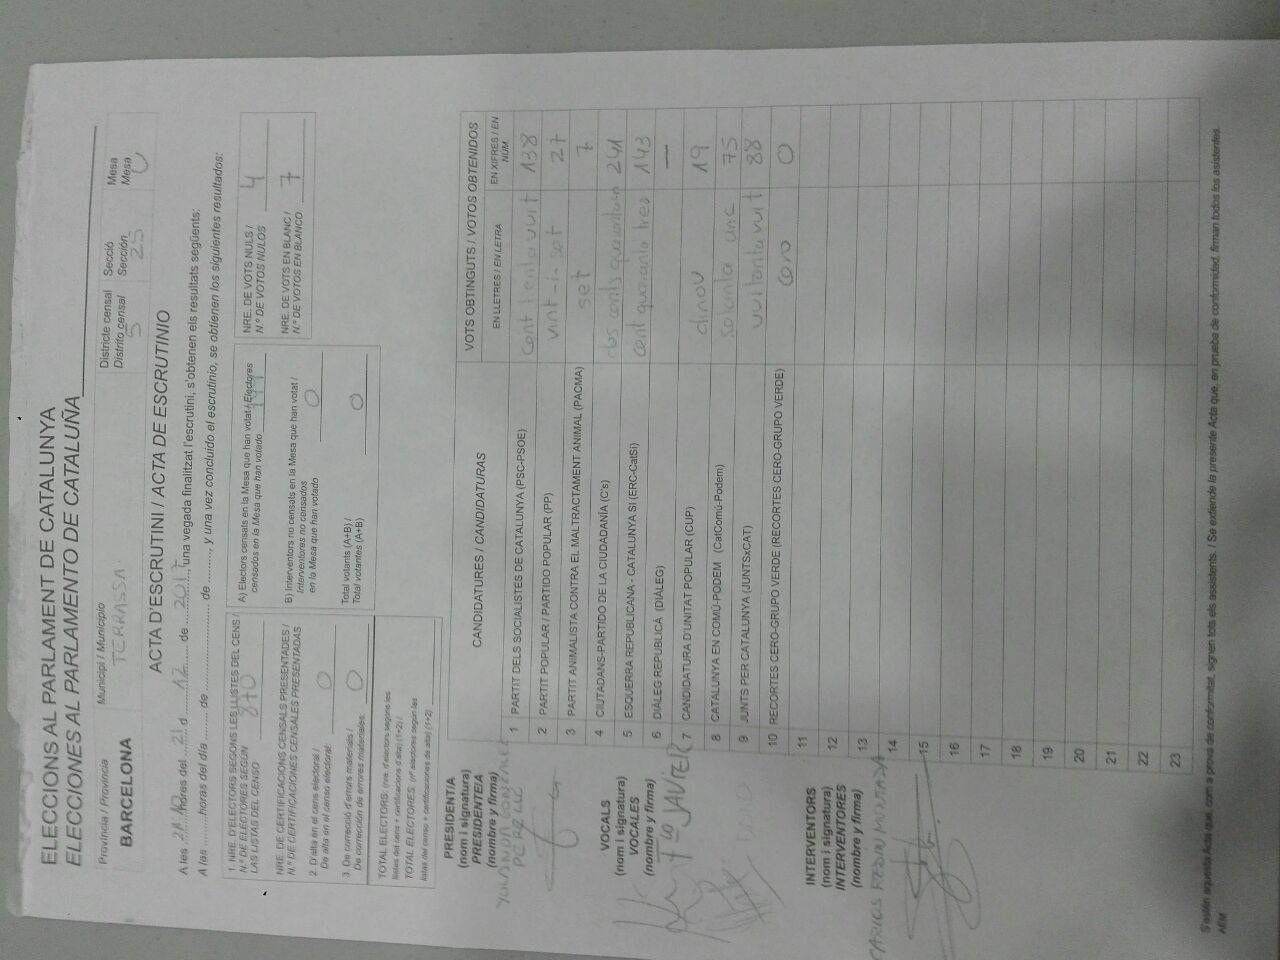 ELECCIONS AL PARLAMENT DE CATALUNYA
ELECCIONES AL PARLAMENTO DE CATALUÑA
Província / Provincia
BARCELONA
Municipi / Municipio
TERRASSA
Districte censal
Distrito censal
5
Secció
Sección
25
Mesa
Mesa
U
ACTA D'ESCRUTINI / ACTA DE ESCRUTINIO
A les hores del 21 d 12 de 2017, una vegada finalitzat l'escrutini, s'obtenen els resultats següents:
A las horas del día de de , y una vez concluido el escrutinio, se obtienen los siguientes resultados:
1. NRE. D'ELECTORS SEGONS LES LLISTES DEL CENS /
N.º DE ELECTORES SEGÚN
LAS LISTAS DEL CENSO 870
NRE. DE CERTIFICACIONS CENSALS PRESENTADES /
N.º DE CERTIFICACIONES CENSALES PRESENTADAS
2. D'alta en el cens electoral /
De alta en el censo electoral: 0
3. De correcció d'errors materials /
De corrección de errores materiales: 0
TOTAL ELECTORS: (nre. d'electors segons les
llistes del cens + certificacions d'alta) (1+2) /
TOTAL ELECTORES: (nº electores según las
listas del censo + certificaciones de alta) (1+2)
A) Electors censats en la Mesa que han votat / Electores
censados en la Mesa que han votado
B) Interventors no censats en la Mesa que han votat /
Interventores no censados
en la Mesa que han votado 0
Total votants (A+B) /
Total votantes (A+B) 0
NRE. DE VOTS NULS /
N.º DE VOTOS NULOS 4
NRE. DE VOTS EN BLANC /
N.º DE VOTOS EN BLANCO 7
PRESIDENT/A
(nom i signatura)
PRESIDENTE/A
(nombre y firma)
VOCALS
(nom i signatura)
VOCALES
(nombre y firma)
JAVIER
INTERVENTORS
(nom i signatura)
INTERVENTORES
(nombre y firma)
CANDIDATURES / CANDIDATURAS
VOTS OBTINGUTS / VOTOS OBTENIDOS
EN LLETRES / EN LETRA
EN XIFRES / EN NÚM.
1 PARTIT DELS SOCIALISTES DE CATALUNYA (PSC-PSOE) Cent trenta vuit 138
2 PARTIT POPULAR / PARTIDO POPULAR (PP) vint-i-set 27
3 PARTIT ANIMALISTA CONTRA EL MALTRACTAMENT ANIMAL (PACMA) set 7
4 CIUTADANS-PARTIDO DE LA CIUDADANÍA (C's) dos cents quaranta un 241
5 ESQUERRA REPUBLICANA - CATALUNYA SÍ (ERC-CatSí) cent quaranta tres 143
6 DIÀLEG REPUBLICÀ (DIÀLEG) —
7 CANDIDATURA D'UNITAT POPULAR (CUP) dinou 19
8 CATALUNYA EN COMÚ-PODEM (CatComú-Podem) 75
9 JUNTS PER CATALUNYA (JUNTSxCAT) vuitanta vuit 88
10 RECORTES CERO-GRUPO VERDE (RECORTES CERO-GRUPO VERDE) cero 0
11
12
13
14
15
16
17
18
19
20
21
22
23
S'estén aquesta Acta que, com a prova de conformitat, signen tots els assistents. / Se extiende la presente Acta que, en prueba de conformidad, firman todos los asistentes.